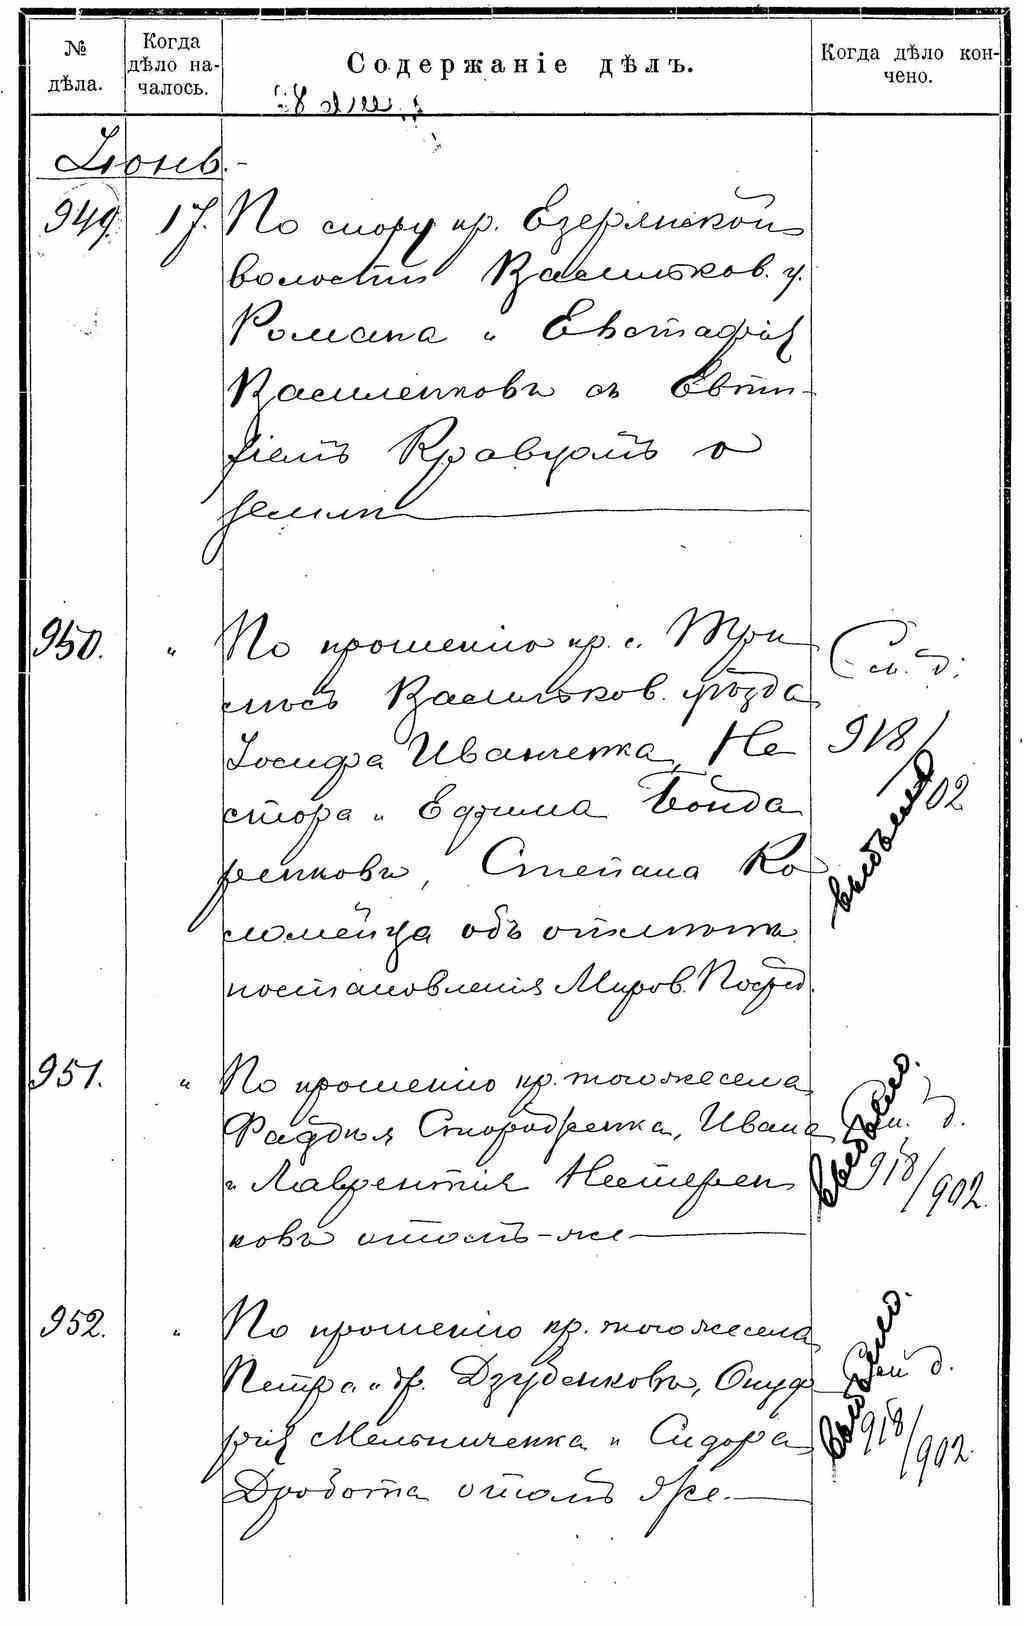 № дѣла.
Когда дѣло на-
чалось.
Содержаніе дѣлъ.
Когда дѣло кон-
чено.
Іюнь.-
949. 17. По спору кр. Езерянской
волости Васильков. у.
Романа и Евстафія
Василенковъ съ Евти-
хіемъ Кравцомъ о
землѣ
950. „ По прошенію кр. с. Три
лѣсъ Васильков. уѣзда
Іосифа Иванченка, Не
стора и Ефима Бонда
ренковъ, Степана Ко
ломейца объ отмѣнѣ
постановленія Миров. Посред.
См. д.
918/02
951. „ По прошенію кр. того же села
Фаддея Сторо, Ивана
и Лаврентія Нестерен
ковъ о томъ-же
См. д.
918/902.
952. „ По прошенію кр. того же села
Петра и др. Дзубенковъ, Онуф
рія Мельниченка и Сидора
Дробота о томъ же.
См. д.
918/902.